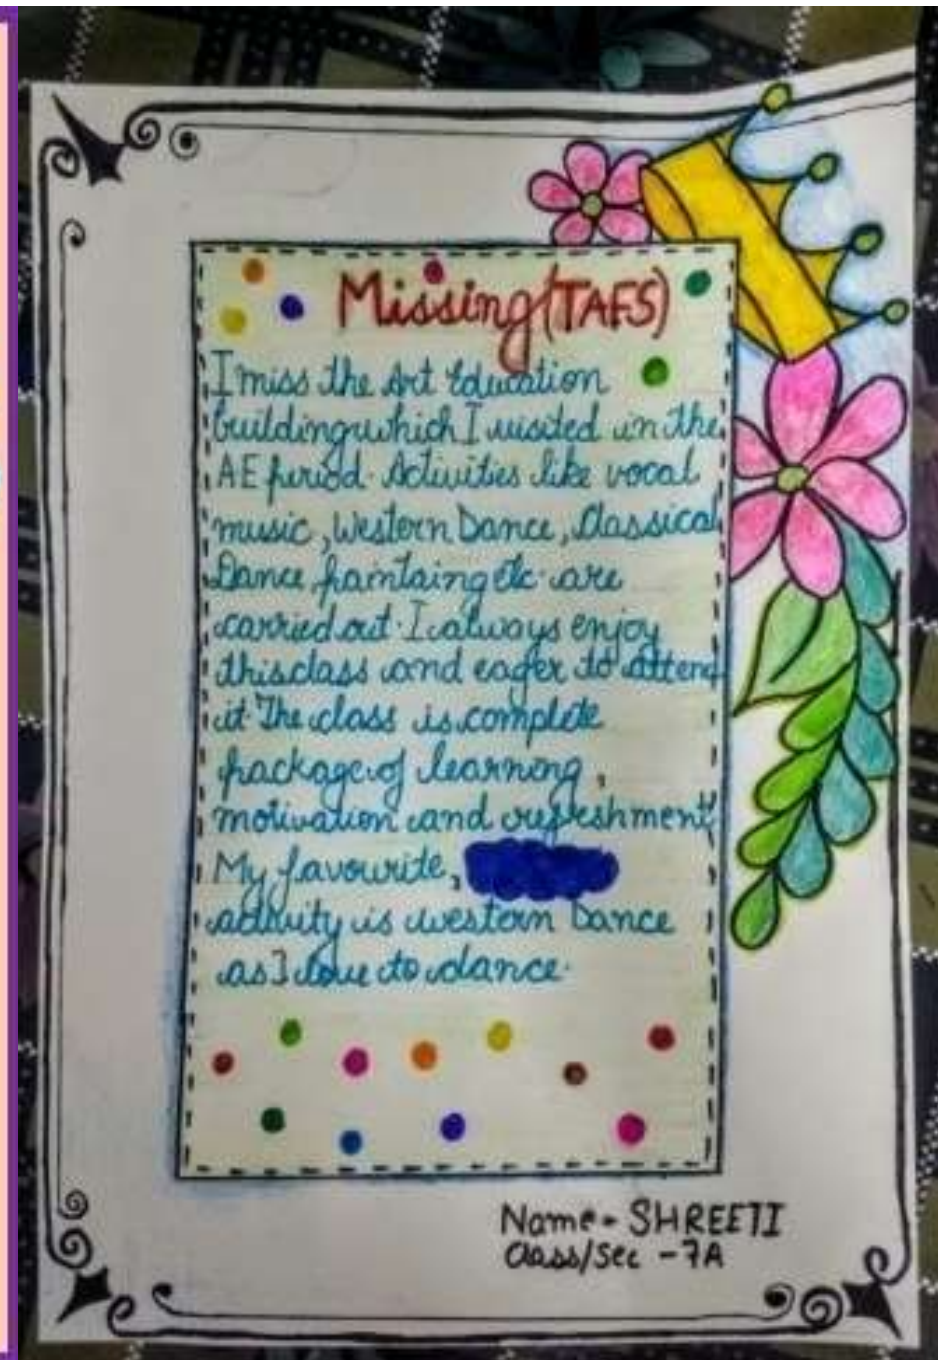 Missing (TAFS)
I miss the Art Education
building which I visited in the
AE period. Activities like vocal
music, Western Dance, Classical
Dance paintaing etc. are
carried out. I always enjoy
this class and eager to attend
it. The class is complete
package of learning,
motivation and refreshment.
My favourite,
activity is western Dance
as I love to dance.
Name - SHREETI
Class/Sec - 7A